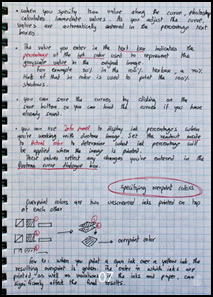 • when you specify ink value along the curve, photoshop
calculates immediate values. As you adjust the curve,
values are automatically entered in the percentage text
boxes.
• The value you enter in the text box indicates the
percentage of the ink color used to represent the
grayscale value in the original image.
For example 70% in the 100% textbox, a 70%
tint of that ink color is used to print the 100%
shadows.
• you can save the curves by clicking on the
save button so you can load the curves if you have
already saved.
• you can use Info panel to display ink percentages when
you're working with duotone image. Set the readout mode
to Actual color to determine what ink percentages will
be applied when the image is printed.
These values reflect any changes you've entered in the
duotone curve dialogue box.
Specifying overprint colors
Overprint colors are two unscreened inks printed on top
of each other.
overprint color
for Ex when you print a cyan ink over a yellow ink, the
resulting overprint is green. The order in which inks are
printed, as well as variations in the inks and paper, can
significantly affect the final results.
07